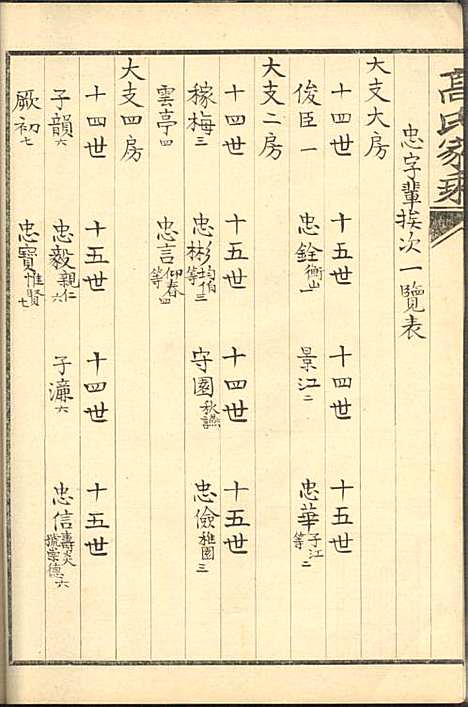 高氏家乘
忠字輩挨次一覽表
大支大房
十四世 十五世 十四世 十五世
俊臣一 忠銓衡山一 景江二 忠華子江等二
大支二房
十四世 十五世 十四世 十五世
稼梅三 忠彬均伯等三 守園秋謡 忠儉稚園三
雲亭四 忠言仰春等四
大支四房
十四世 十五世 十四世 十五世
子韻六 忠毅親仁六 子濂六 忠信壽炎 崇德六
厥初七 忠寶惟賢七